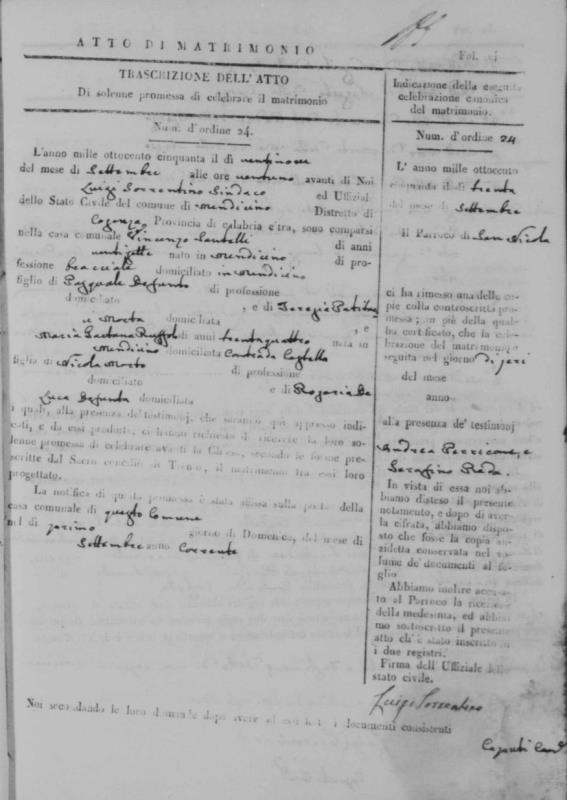 ATTO DI MATRIMONIO
Fol.
TRASCRIZIONE DELL'ATTO
Di solenne promessa di celebrare il matrimonio
Num. d'ordine 24.
L'anno mille ottocento cinquanta il dì ventinove
del mese di Settembre alle ore ventuno avanti di Noi
Luigi Sorrentino Sindaco ed Uffiziale
dello Stato Civile del comune di Mendicino Distretto di
Cosenza, Provincia di calabria citra, sono comparsi
nella casa comunale Vincenzo di anni
ventisette nato in Mendicino di pro-
fessione bracciale domiciliato in Mendicino
figlio di Pasquale Defunto di professione
domiciliato , e di Teresia
e Morta domiciliata , e
Maria Gaetana di anni trentaquattro nata in
Mendicino domiciliata Contrada
figlia di Nicola Morto di professione
domiciliato e di Rosaria De
Luca Defunta domiciliata
i quali, alla presenza de' testimonj, che saranno qui appresso indi-
cati, e da essi prodotti, ci hanno richiesto di ricevere la loro so-
lenne promessa di celebrare avanti la Chiesa, secondo le forme pre-
scritte dal Sacro concilio di Trento, il matrimonio tra essi loro
progettato.
La notifica di questa promessa è stata affissa sulla porta della
casa comunale di questo Comune
nel dì primo giorno di Domenica, del mese di
Settembre anno Corrente
Noi secondando le loro domande dopo avere ad essi letti i documenti consistenti
Indicazione della eseguita
celebrazione canonica
del matrimonio.
Num. d'ordine 24
L'anno mille ottocento
cinquanta il dì trenta
del mese di Settembre
Il Parroco di San Nicola
ci ha rimesso una delle co-
pie colla controscritta pro-
messa; in piè della quale
ha certificato, che la cele-
brazione del matrimonio
seguita nel giorno di jeri
del mese
anno
alla presenza de' testimonj
Andrea Perricone, e
Serafino Reda.
In vista di essa noi ab-
biamo disteso il presente
notamento, e dopo di aver-
la cifrata, abbiamo dispo-
sto che fosse la copia an-
zidetta conservata nel vo-
lume de' documenti al fo-
glio
Abbiamo inoltre accusa-
to al Parroco la ricezione
della medesima, ed abbia-
mo sottoscritto il presente
atto ch'è stato inscritto in
i due registri.
Firma dell'Uffiziale dello
stato civile.
Luigi Sorrentino